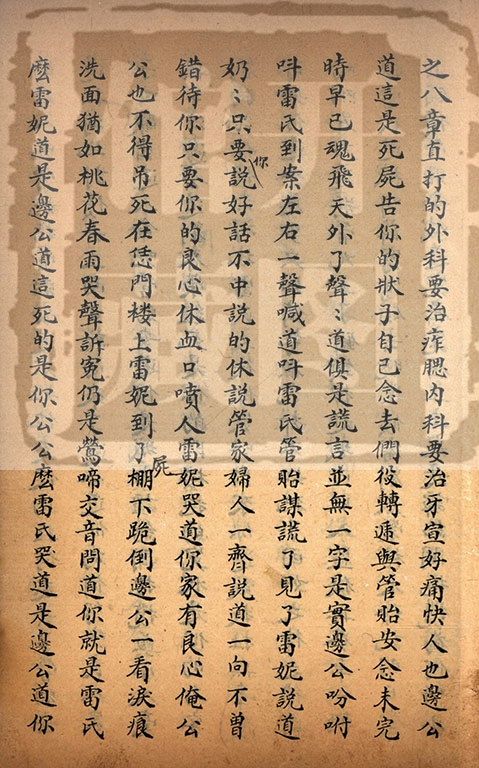 之八章直打的外科要治痄腮内科要治牙宣好痛快人也邊公
道這是死屍告你的狀子自己念去們役轉遞與管貽安念未完
時早已魂飛天外了聲〻道俱是謊言並無一字是實邊公吩咐
呌雷氏到案左右一聲喊道呌雷氏管貽謀謊了見了雷妮説道
奶〻只要你説好話不中説的休説管家婦人一齊説道一向不曽
錯待你只要你的良心休血口噴人雷妮哭道你家有良心俺公
公也不得吊死在恁門楼上雷妮到了屍棚下跪倒邊公一看淚痕
洗面猶如桃花春雨哭聲訴寃仍是鶯啼交音問道你就是雷氏
麽雷妮道是邊公道這死的是你公公麽雷氏哭道是邊公道你